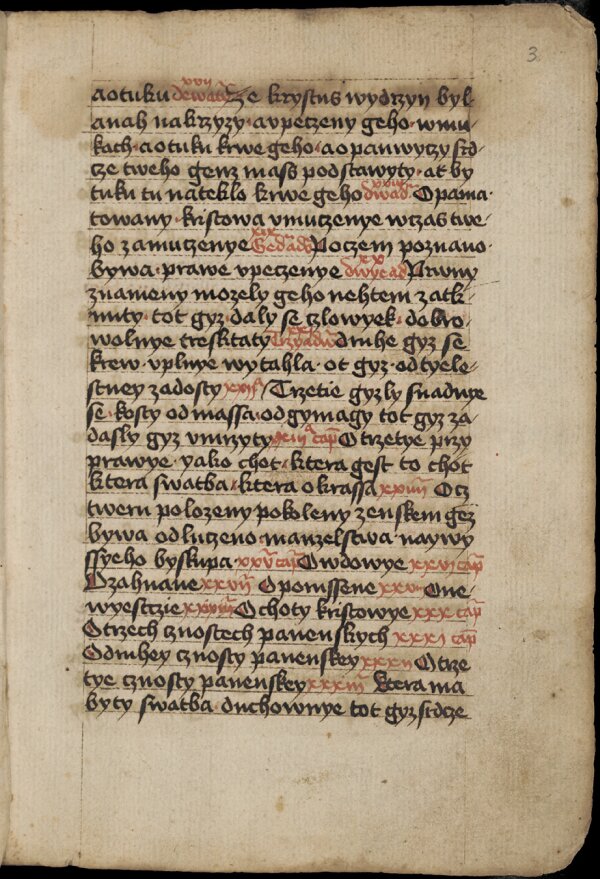 3
xvii
aotuku dewate Ze krystus wydrzyn byl
anah na krzyzy · a vpeczeny geho · wmu
kach · aotuku krwe geho · a o panwyczy srd
cze tweho genz mass podstawyty · at by
xviii
tuku tu nateklo krwe geho dwad Opama
towany · kristowa vmuczenye wczas twe
xix
ho zamuczenye Poczem poznawo
xx
bywa · prawe vpeczenye Prwny
znameny mozely geho nehtem zatk
nuty · tot gyz · daly se czlowyek · dobro
wolnye tresktaty druhe gyz se
krew · vplnye wytahla · ot gyz · od tyele
stney zadosty xxii Trzetie gyzly snadnye
se · kosty od massa · odgymagy tot gyz za
dasly gyz vmrzyty cap Otrzetye przy
prawye · yako chot · ktera gest to chot
ktera swatba · ktera okrassa xxiiii Ocz
tweru polozeny pokoleny zenskem gez
bywa odluczeno · manzelstwa · naywy
ssyeho byskupa · xxv cap Owdowye xxvi cap
Ozahnane xxvii Oponissene One
wyesteczie Ochoty kristowye xxx cap
Otrzech cznostech panenskych xxxi cap
Odruhey cznosty panenskey xxxii Otrze
tye cznosty panenskey xxxiii Ktera ma
byty swatba · duchownye tot gyz srdcze